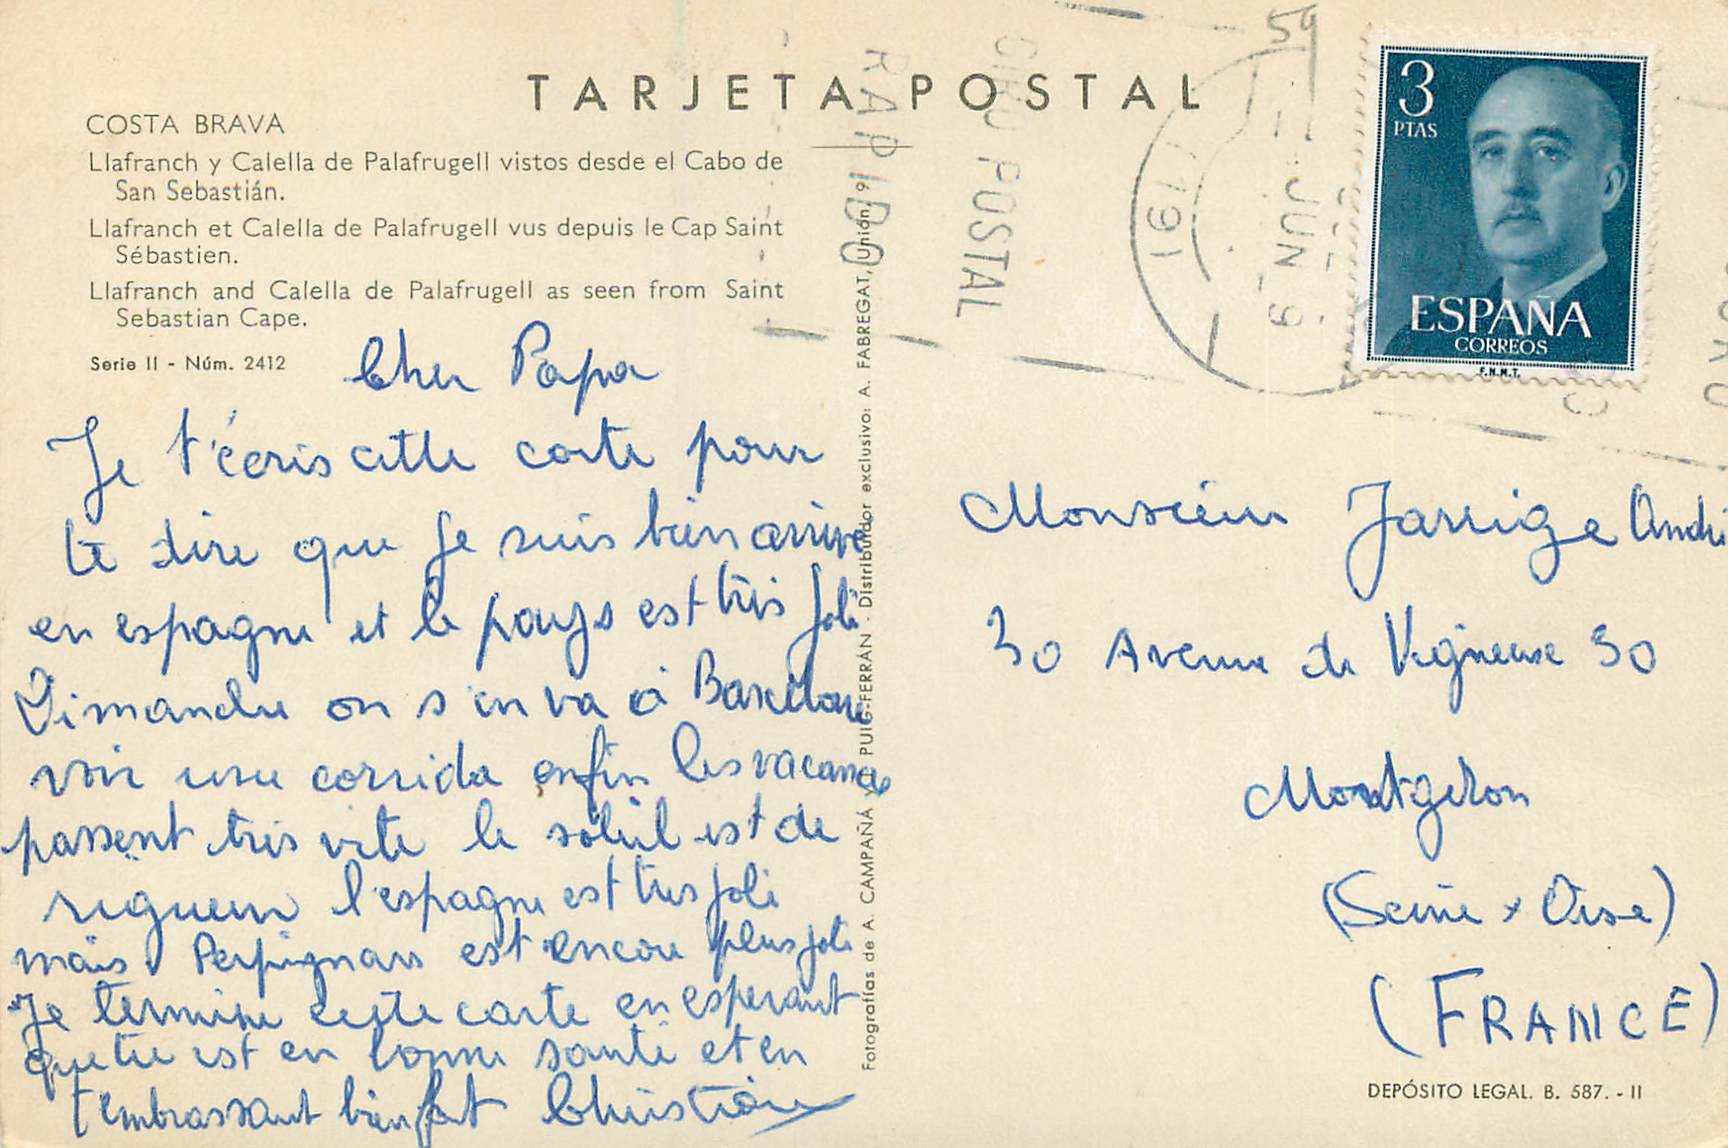 TARJETA POSTAL
COSTA BRAVA
Llafranch y Calella de Palafrugell vistos desde el Cabo de
San Sebastián.
Llafranch et Calella de Palafrugell vus depuis le Cap Saint
Sébastien.
Llafranch and Calella de Palafrugell as seen from Saint
Sebastian Cape.
Serie II - Núm. 2412
Cher Papa
Je t'écris cette carte pour
te dire que je suis bien arrivé
en espagne et le pays est très joli
Dimanche on s'en va à Barcelone
voir une corrida enfin les vacances
passent très vite le soleil est de
rigueur l'espagne est très joli
mais Perpignan est encore plus joli
Je termine cette carte en esperant
que tu est en bonne santé et en
t'embrassant bien fort Christian
Fotografías de A. CAMPAÑÁ y J. PUIG-FERRÁN - Distribuidor exclusivo: A. FABREGAT, Unión, 9
RAPIDO
GIRO POSTAL
JUN
3
PTAS
ESPAÑA
CORREOS
F.N.M.T.
Monsieur Jarrige André
30 Avenue de Vigneuse 30
Montgeron
(Seine x Oise)
(FRANCE)
DEPÓSITO LEGAL. B. 587. - II